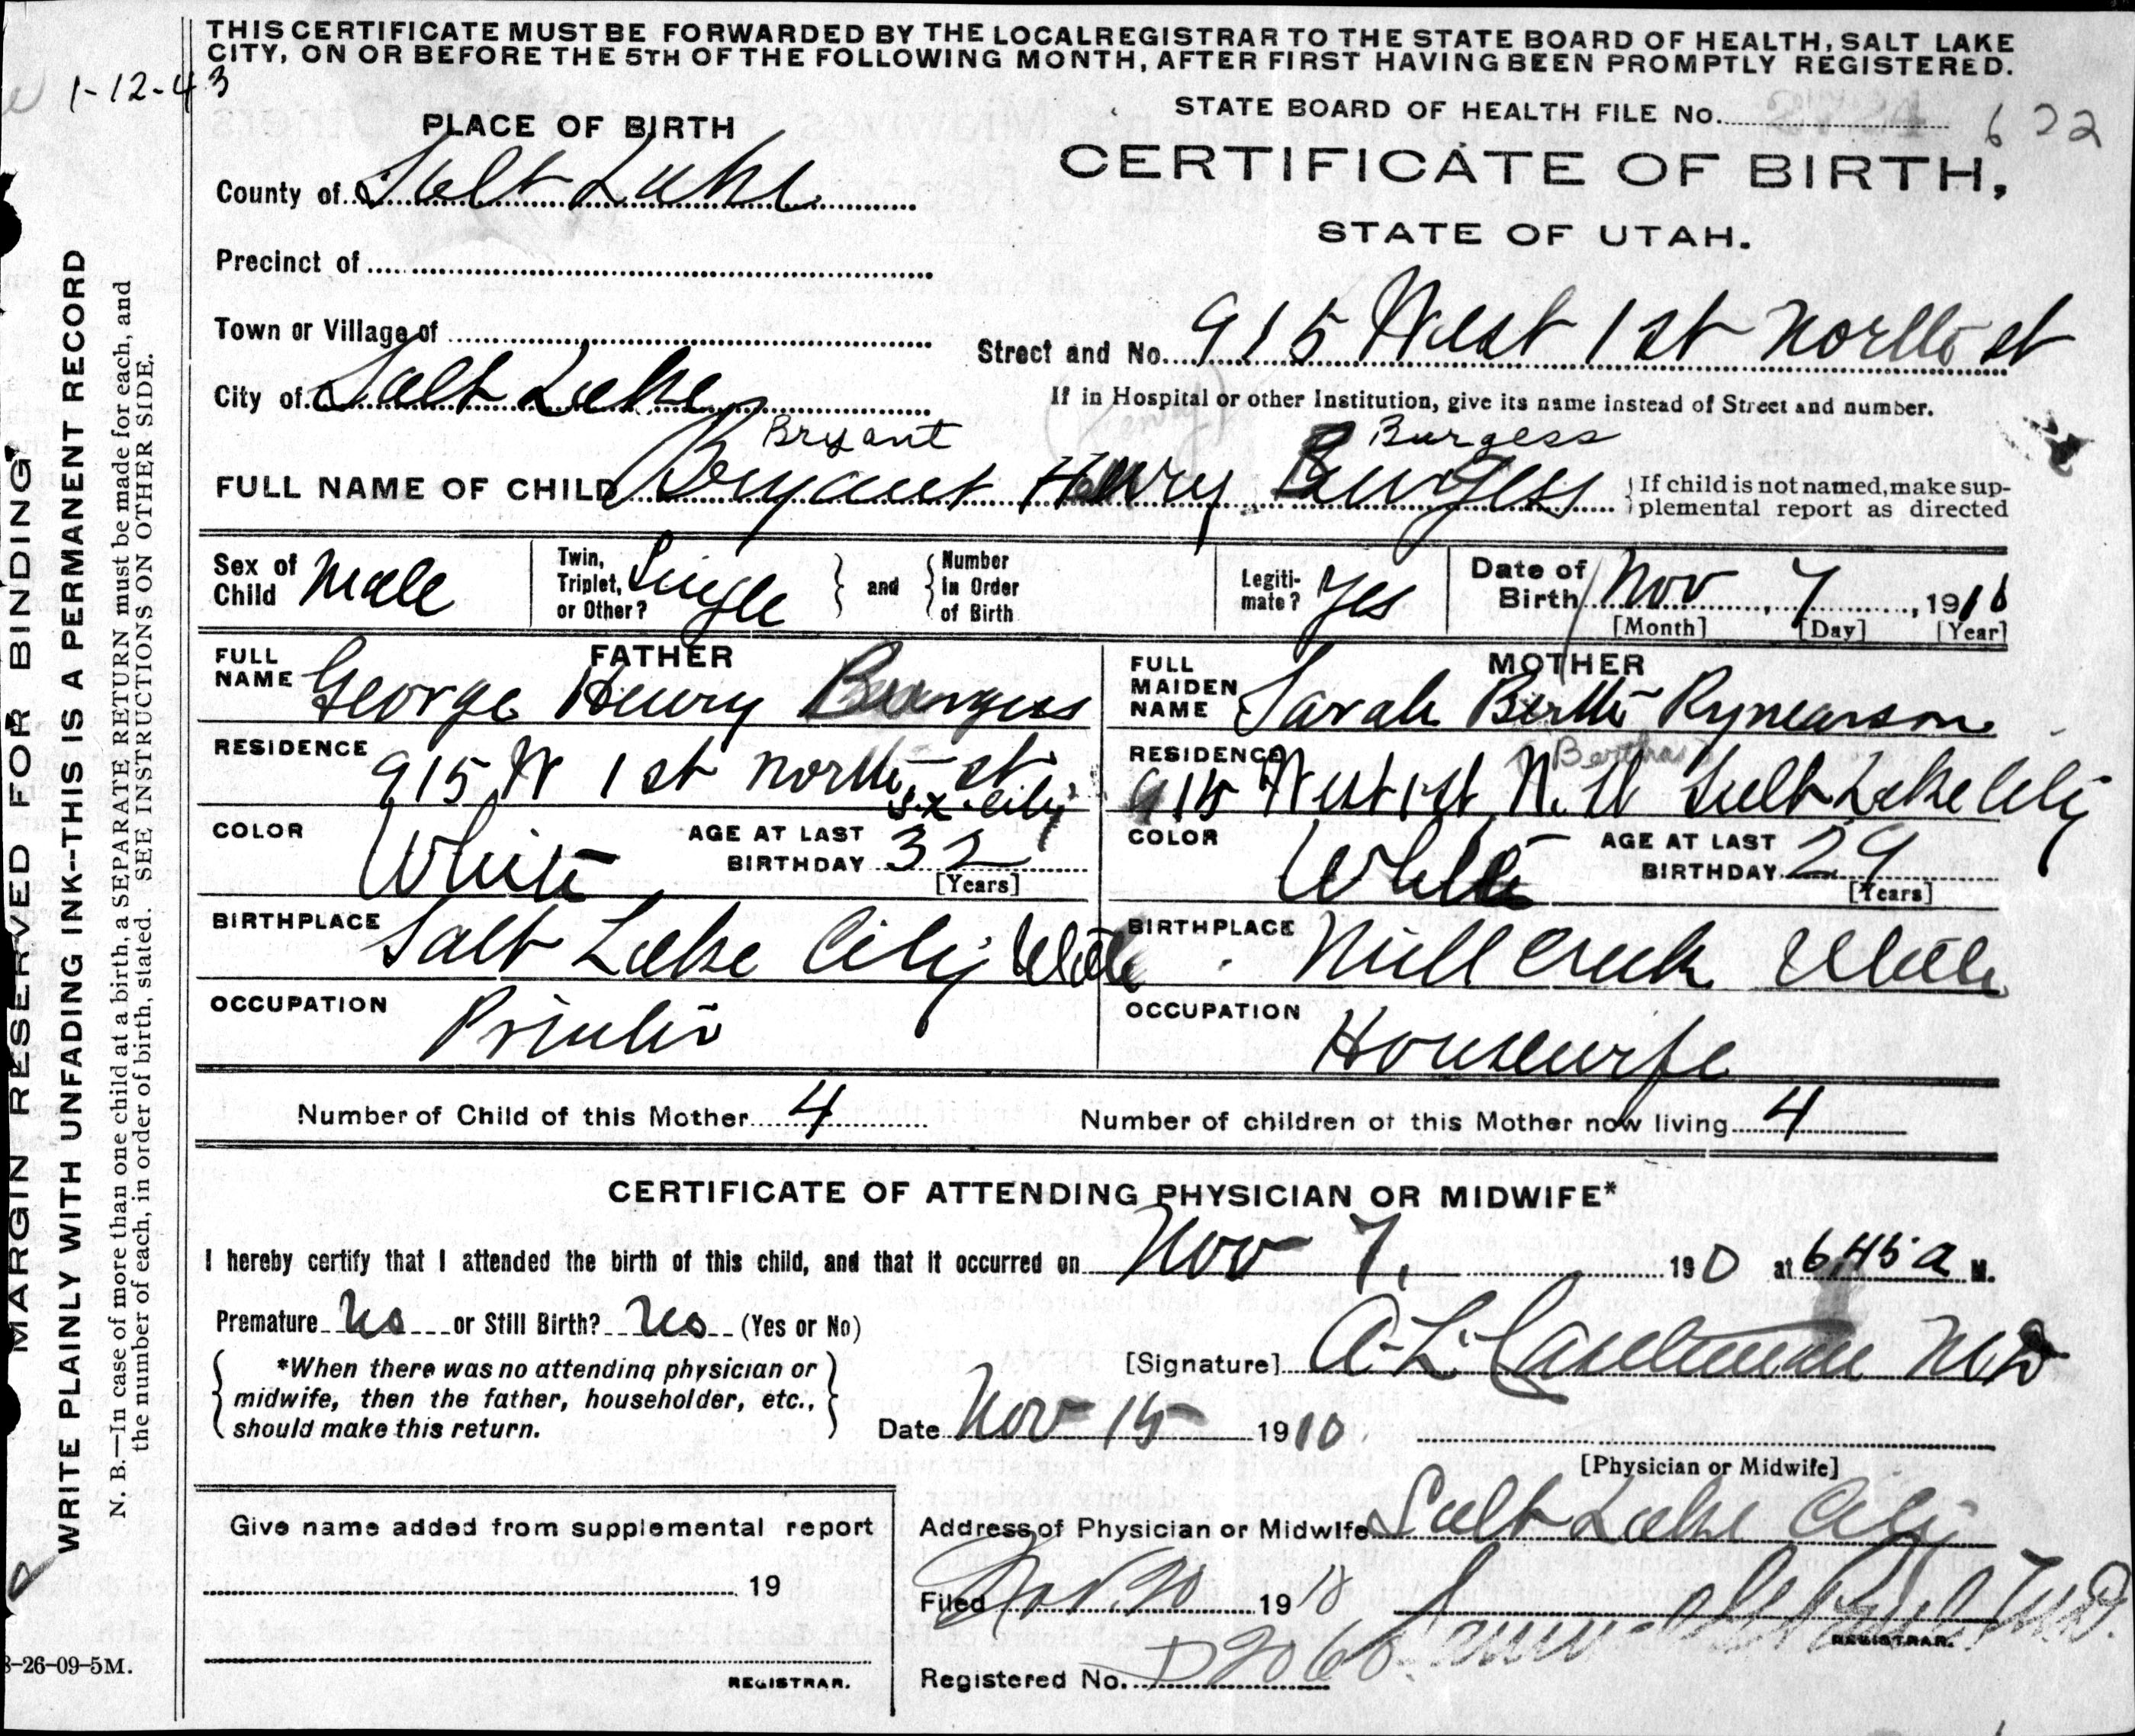 THIS CERTIFICATE MUST BE FORWARDED BY THE LOCAL REGISTRAR TO THE STATE BOARD OF HEALTH, SALT LAKE
CITY, ON OR BEFORE THE 5TH OF THE FOLLOWING MONTH, AFTER FIRST HAVING BEEN PROMPTLY REGISTERED.
1-12-43
STATE BOARD OF HEALTH FILE No. 622
PLACE OF BIRTH
CERTIFICATE OF BIRTH,
STATE OF UTAH.
County of Salt Lake
Precinct of
Town or Village of
Street and No. 915 West 1st North st
City of Salt Lake
If in Hospital or other Institution, give its name instead of Street and number.
(Henry)
Bryant Burgess
FULL NAME OF CHILD Bryant Henry Burgess
{If child is not named, make sup-
plemental report as directed
Sex of Child Male
Twin, Triplet, or Other? Single } and { Number in Order of Birth
Legiti-mate? Yes
Date of Birth Nov, 7, 1910
[Month] [Day] [Year]
FATHER
FULL NAME George Henry Burgess
RESIDENCE 915 W 1st North st.
S.L. City
COLOR White
AGE AT LAST BIRTHDAY 32
[Years]
BIRTHPLACE Salt Lake City Utah
OCCUPATION Printer
MOTHER
FULL MAIDEN NAME Sarah Bertha Rynearson
(Bertha)
RESIDENCE 915 West 1st N. st Salt Lake City
COLOR White
AGE AT LAST BIRTHDAY 29
[Years]
BIRTHPLACE Mill Creek Utah
OCCUPATION Housewife
Number of Child of this Mother 4
Number of children of this Mother now living 4
CERTIFICATE OF ATTENDING PHYSICIAN OR MIDWIFE*
I hereby certify that I attended the birth of this child, and that it occurred on Nov 7, 190 at 6,45 a M.
Premature No or Still Birth? No (Yes or No)
{ *When there was no attending physician or
midwife, then the father, householder, etc.,
should make this return. }
[Signature] A. L. M.D.
Date Nov 15 1910
[Physician or Midwife]
Give name added from supplemental report
19
REGISTRAR.
Address of Physician or Midwife Salt Lake City
Filed Nov. 1910
M.D.
REGISTRAR.
Registered No. D2060
MARGIN RESERVED FOR BINDING
WRITE PLAINLY WITH UNFADING INK--THIS IS A PERMANENT RECORD
N. B.—In case of more than one child at a birth, a SEPARATE RETURN must be made for each, and
the number of each, in order of birth, stated. SEE INSTRUCTIONS ON OTHER SIDE.
8-26-09-5M.